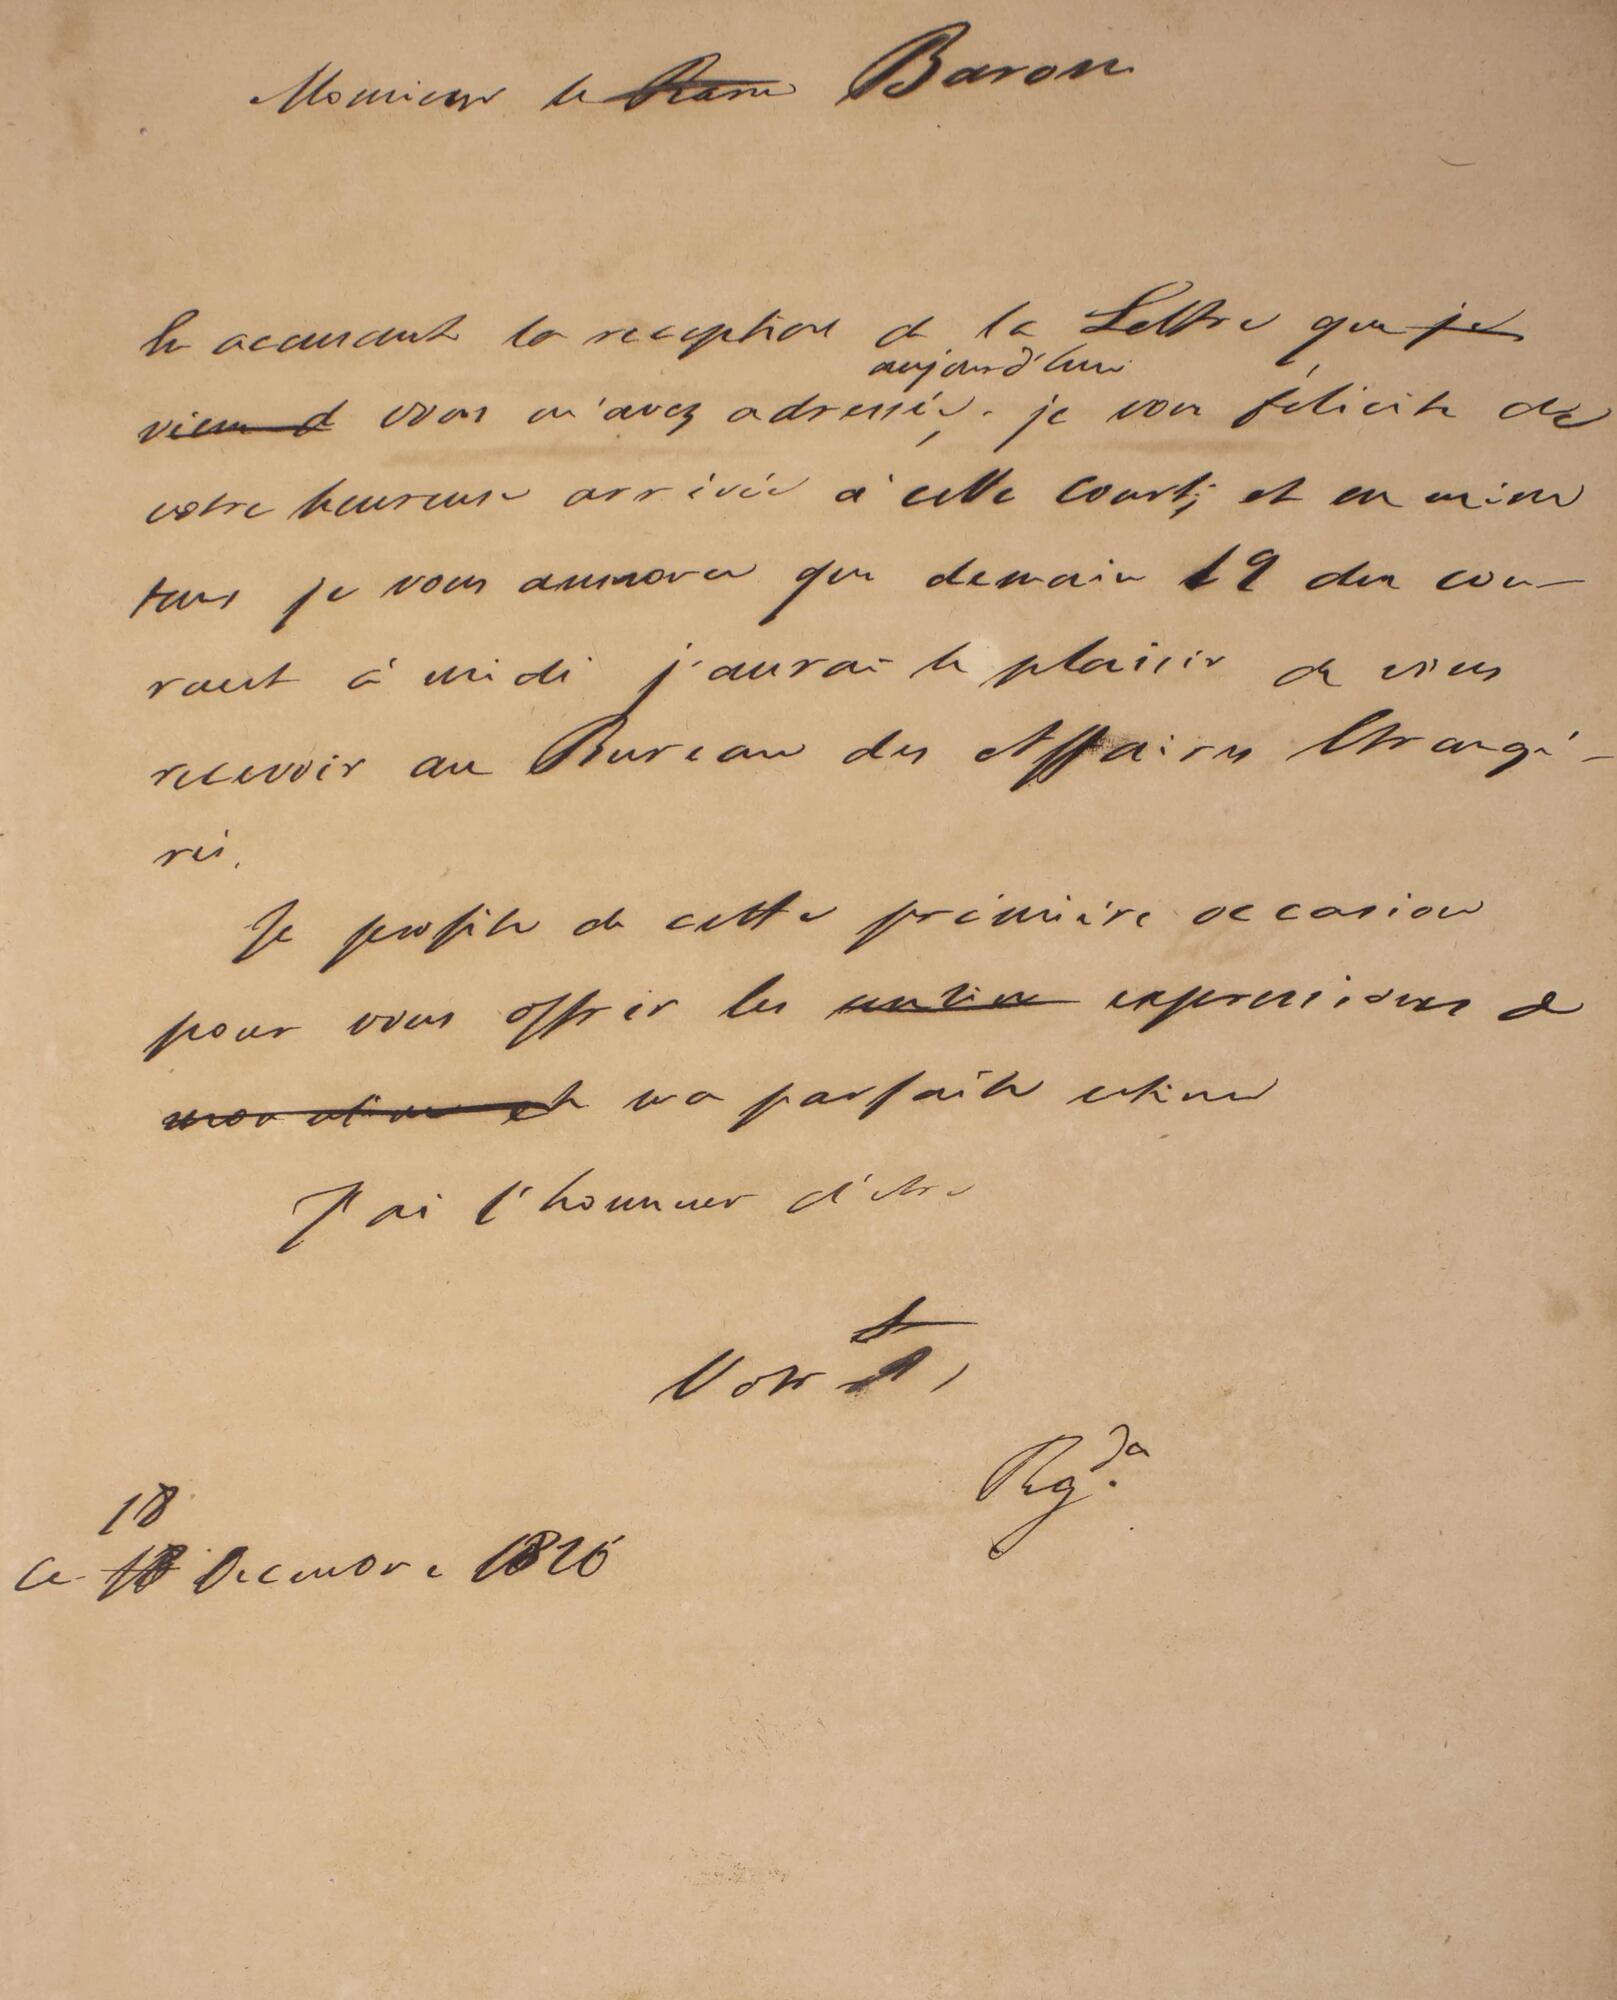 Monsieur le Baron Baron
En accusant la reception de la Lettre que je
viens d vous m'avez adressée, je vous félicite de
aujourd'hui
votre heureuse arrivée à cette Court; et en même
tems je vous annonce que demain 19 du cou-
rant à midi j'aurai le plaisir de vous
recevoir au Bureau des Affaires Etrangé-
res.
Je profite de cette prémière occasion
pour vous offrir les expressions de
mon estime et ma parfaite estime
J'ai l'honneur d'etre
Votr
Rgda.
18
Ce 18 Decembre 1826